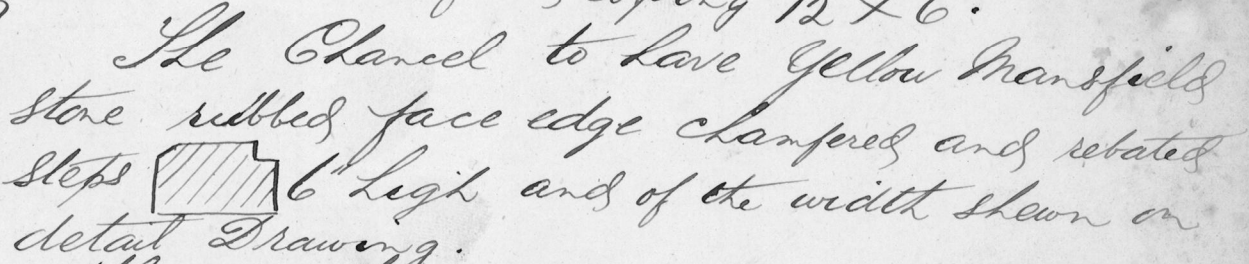 coping 12 X 6.
The Chancel to have Yellow Mansfield
stone rubbed face edge chamfered and rebated
steps 6" high and of the width shewn on
detail Drawing.